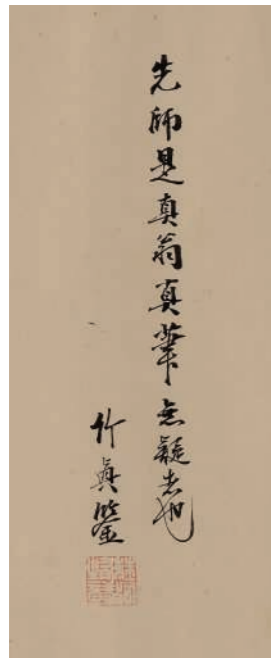 先師是真翁真筆無疑者也
竹真鑒